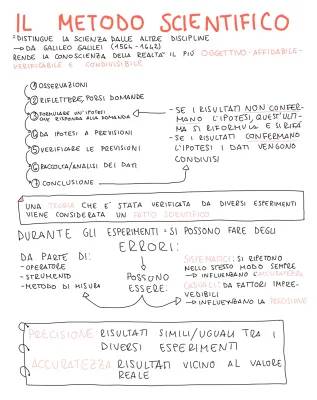 IL METODO SCIENTIFICO
°DISTINGUE LA SCIENZA DALLE ALTRE DISCIPLINE
→DA GALILEO GALILEI (1564-1642)
RENDE LA CONOSCIENZA DELLA REALTA' IL PIÙ OGGETTIVO-AFFIDABILE-
VERIFICABILE E CONDIVISIBILE
① OSSERVAZIONI
② RIFLETTERE, PORSI DOMANDE
③ FORMULARE UN'IPOTESI
CHE RISPONDA ALLA DOMANDA
④ DA IPOTESI A PREVISIONI
⑤ VERIFICARE LE PREVISIONI
⑥ RACCOLTA/ANALISI DEI DATI
⑦ CONCLUSIONE
-SE I RISULTATI NON CONFER-
MANO L'IPOTESI, QUEST'ULTI-
MA SI RIFORMULA E SI RIFÀ
-SE I RISULTATI CONFERMANO
L'IPOTESI I DATI VENGONO
CONDIVISI
UNA TEORIA CHE E' STATA VERIFICATA DA DIVERSI ESPERIMENTI
VIENE CONSIDERATA UN FATTO SCIENTIFICO
DURANTE GLI ESPERIMENTI SI POSSONO FARE DEGLI
ERRORI:
DA PARTE DI:
-OPERATORE
-STRUMENTO
-METODO DI MISURA
POSSONO
ESSERE:
SISTEMATICI: SI RIPETONO
NELLO STESSO MODO SEMPRE
→ INFLUENZANO L'ACCURATEZZA
CASUALI: DA FATTORI IMPRE-
VEDIBILI
→ INFLUENZANO LA PRECISIONE
PRECISIONE: RISULTATI SIMILI/UGUALI TRA I
DIVERSI ESPERIMENTI
ACCURATEZZA: RISULTATI VICINO AL VALORE
REALE